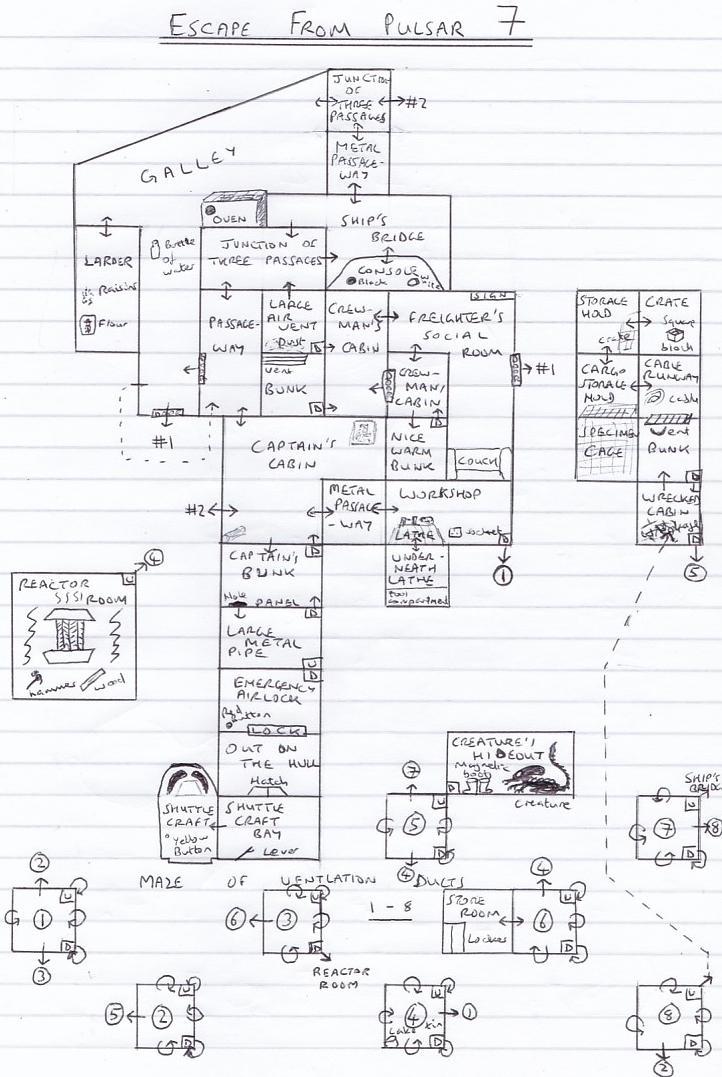 ESCAPE FROM PULSAR 7
JUNCTION
OF
THREE
PASSAGES
#2
METAL
PASSAGE-
WAY
GALLEY
OVEN
SHIP'S
BRIDGE
CONSOLE
Black
White
LARDER
Raisins
Flour
Bottle
of
water
JUNCTION OF
THREE PASSAGES
PASSAGE-
WAY
LARGE
AIR
VENT
Dust
D
Vent
BUNK
D
CREW-
MAN'S
CABIN
SIGN
FREIGHTER'S
SOCIAL
ROOM
#1
CREW-
MAN'S
CABIN
D
DOOR
#1
CAPTAIN'S
CABIN
NICE
WARM
BUNK
COUCH
#2
METAL
PASSAGE
-WAY
WORKSHOP
LATHE
socket
D
1
UNDER-
NEATH
LATHE
tool
compartment
STORAGE
HOLD
crate
CRATE
Square
block
CARGO
STORAGE
HOLD
CABLE
RUNWAY
cable
SPECIMEN
CAGE
Vent
BUNK
D
WRECKED
CABIN
D
5
CAPTAIN'S
BUNK
D
Hole
PANEL
LARGE
METAL
PIPE
D
U
EMERGENCY
AIRLOCK
D
Red
button
LOCK
OUT ON
THE HULL
Hatch
SHUTTLE
CRAFT
Yellow
Button
SHUTTLE
CRAFT
BAY
Lever
4
U
REACTOR
ROOM
hammer
wood
CREATURE'S
HIDEOUT
Magnetic
boots
D
creature
7
U
5
D
4
SHIP'S
BRIDGE
U
7
8
D
MAZE OF VENTLATION DUCTS
1 - 8
2
U
1
D
3
6
U
3
D
REACTOR
ROOM
STORE
ROOM
Locker
4
U
6
D
5
U
2
D
U
4
1
Cake tin
D
U
8
D
2